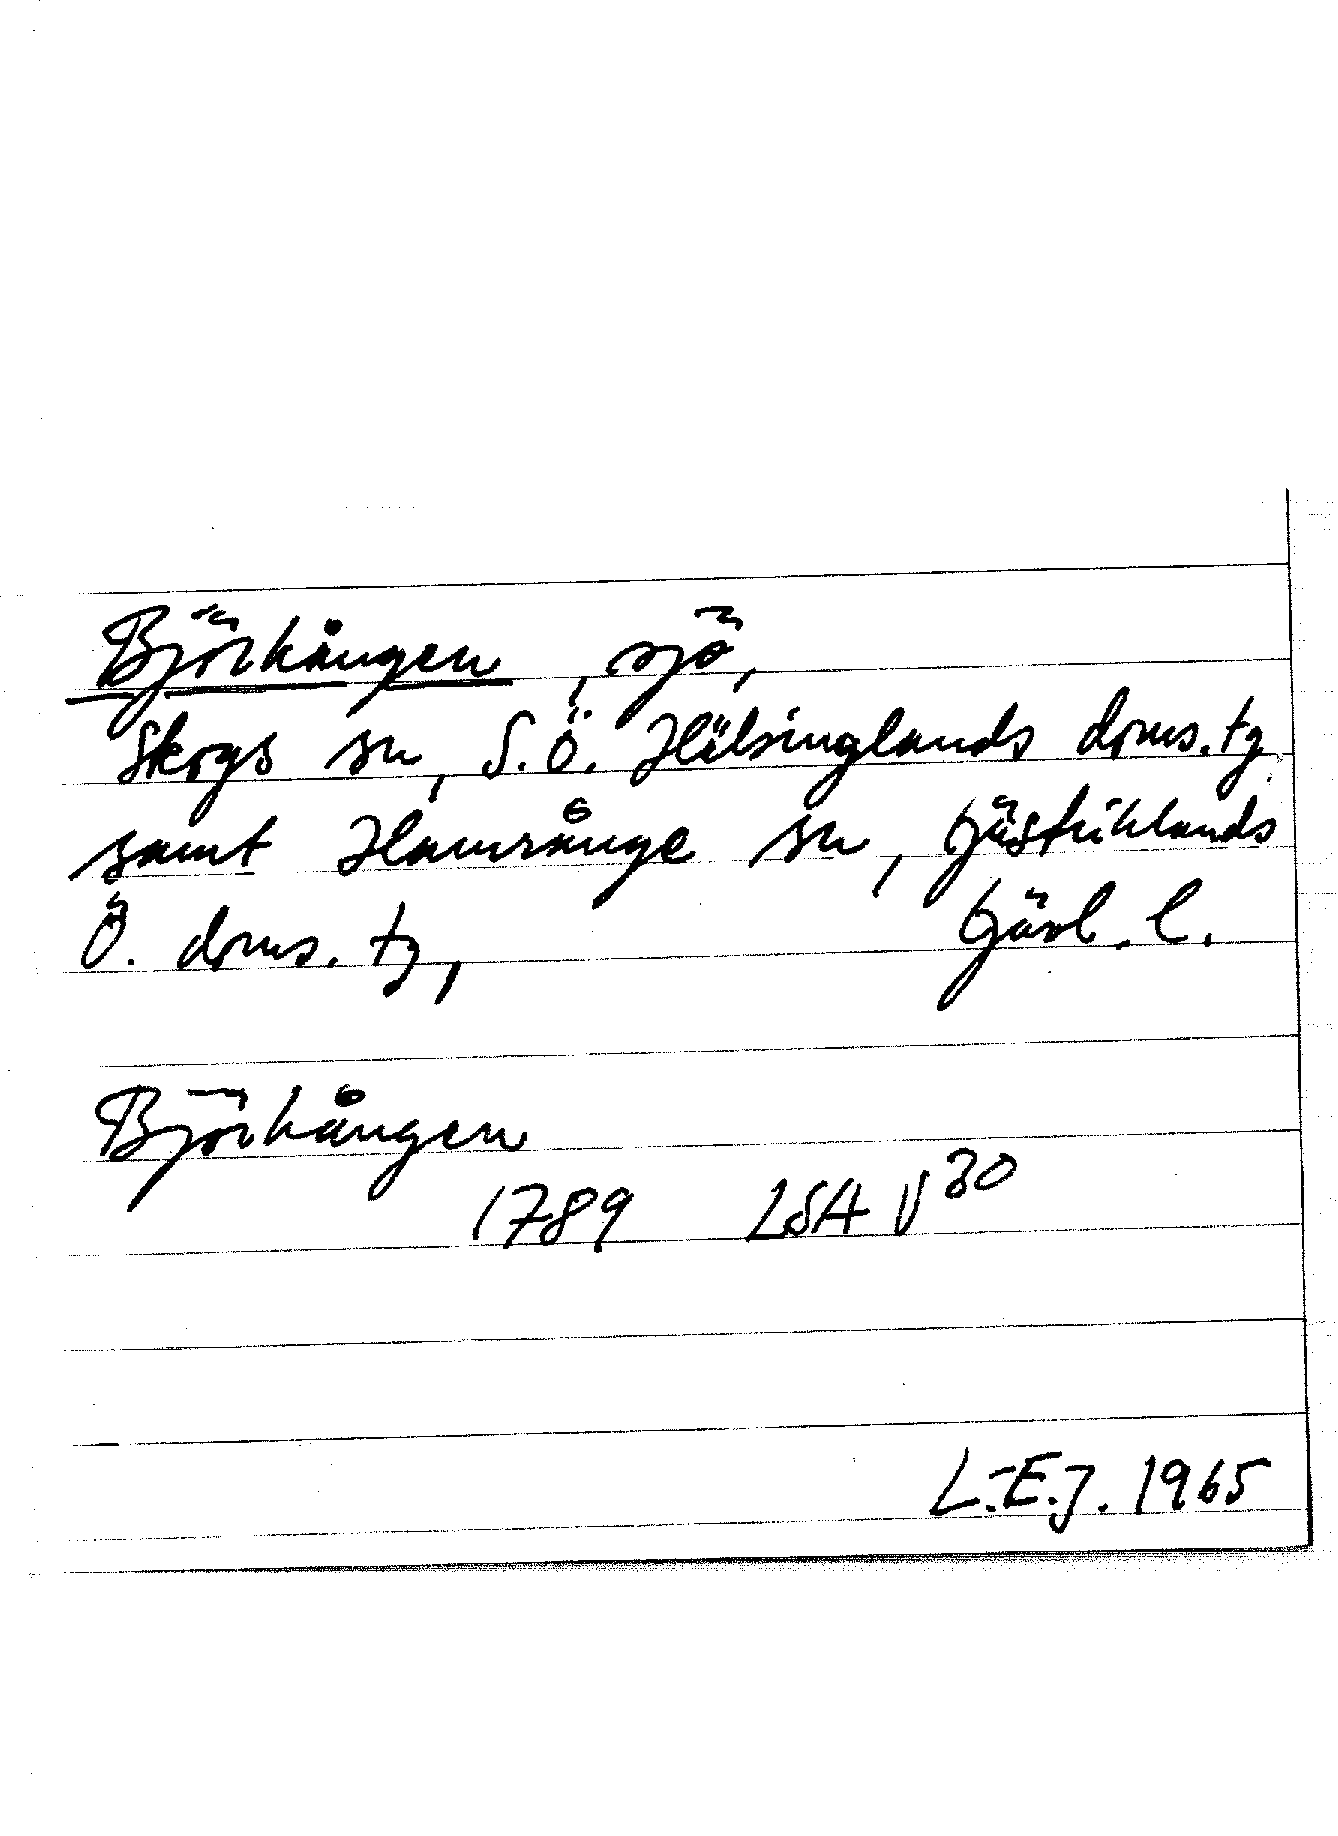 Björkången, sjö,
Skogs sn, S.Ö. Hälsinglands doms.tg
samt Hamrånge sn, Gästriklands
Ö. doms. tg, Gävl. l.
Björkången
1789 LSA V 30
L.-E.J. 1965